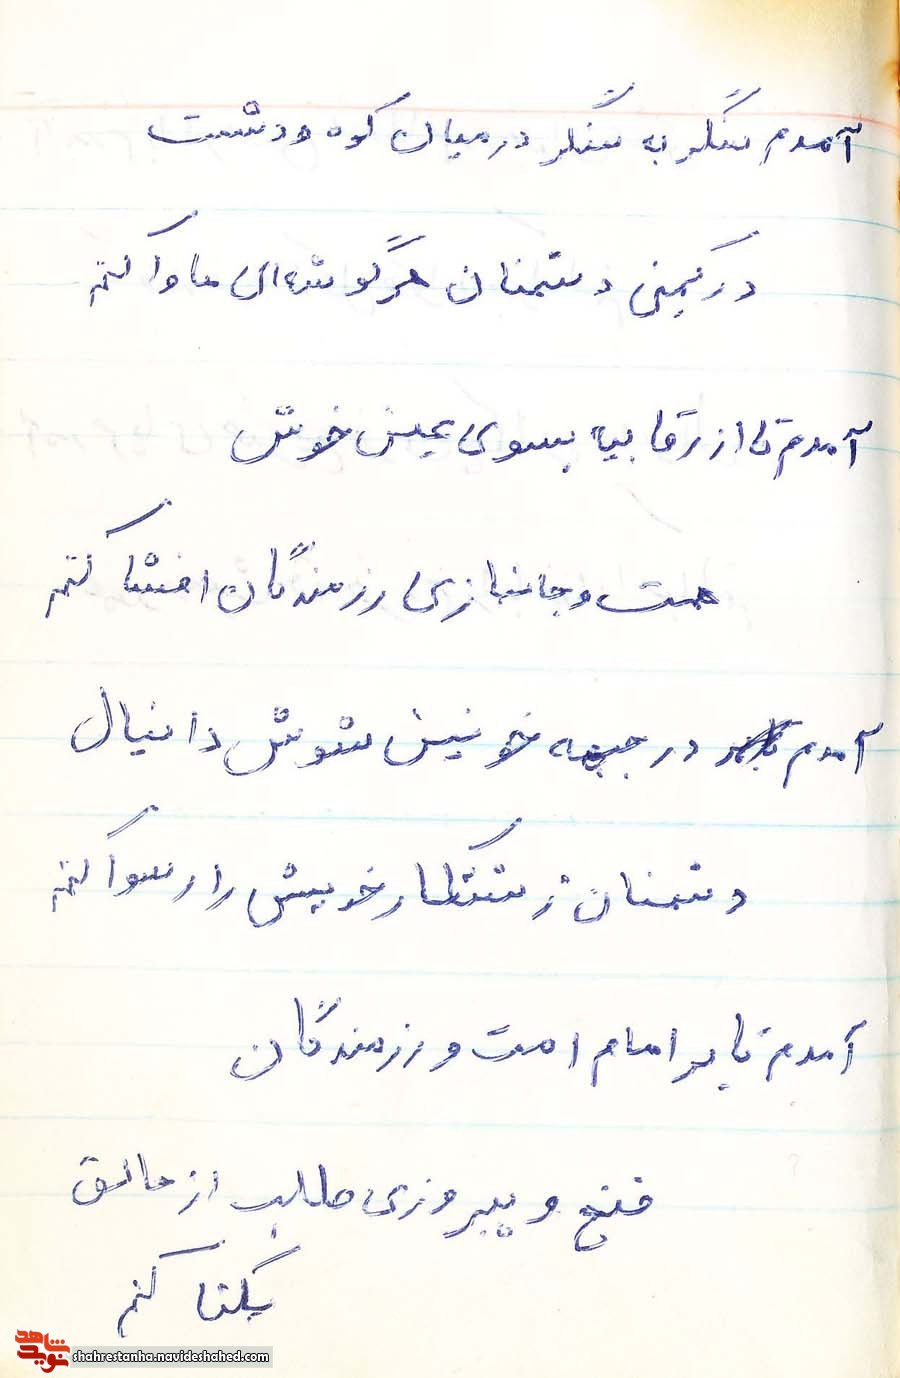 آمدم سنگر به سنگر در میان کوه و دشت
در کمین دشمنان هر گوشه‌ای ماوا کنم
آمدم تا از رقابیه بسوی عین خوش
همت و جانبازی رزمندگان افشا کنم
آمدم در جبهه خونین شوش دانیال
دشمنان زشتکار خویش را رسوا کنم
آمدم تا بر امام امت و رزمندگان
فتح و پیروزی طلب از خالق
یکتا کنم
نوید شاهد
shahrestanha.navideshahed.com